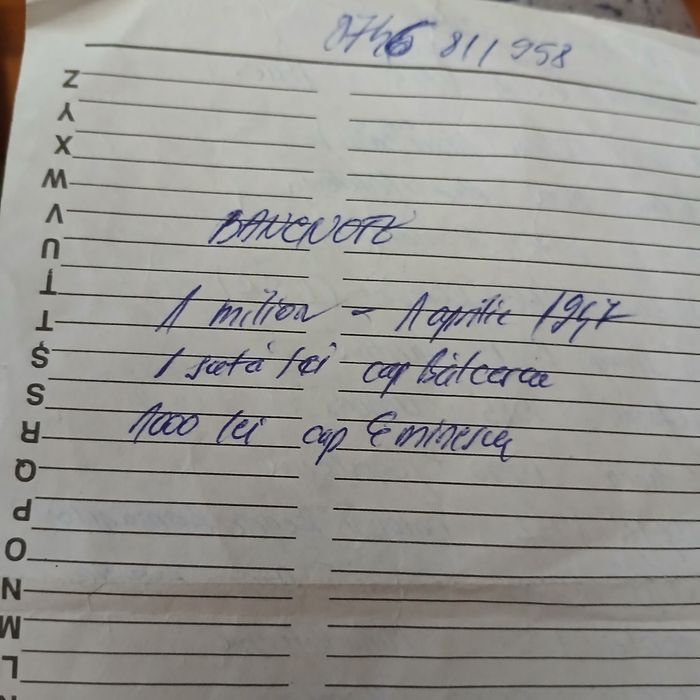 0746 811 958
Z
Y
X
W
V
BANCNOTE
U
Ț
1 milion - 1 aprilie 1947
T
Ș
1 sută lei cap Bălcescu
S
1000 lei cap Eminescu
R
Q
P
O
N
M
L